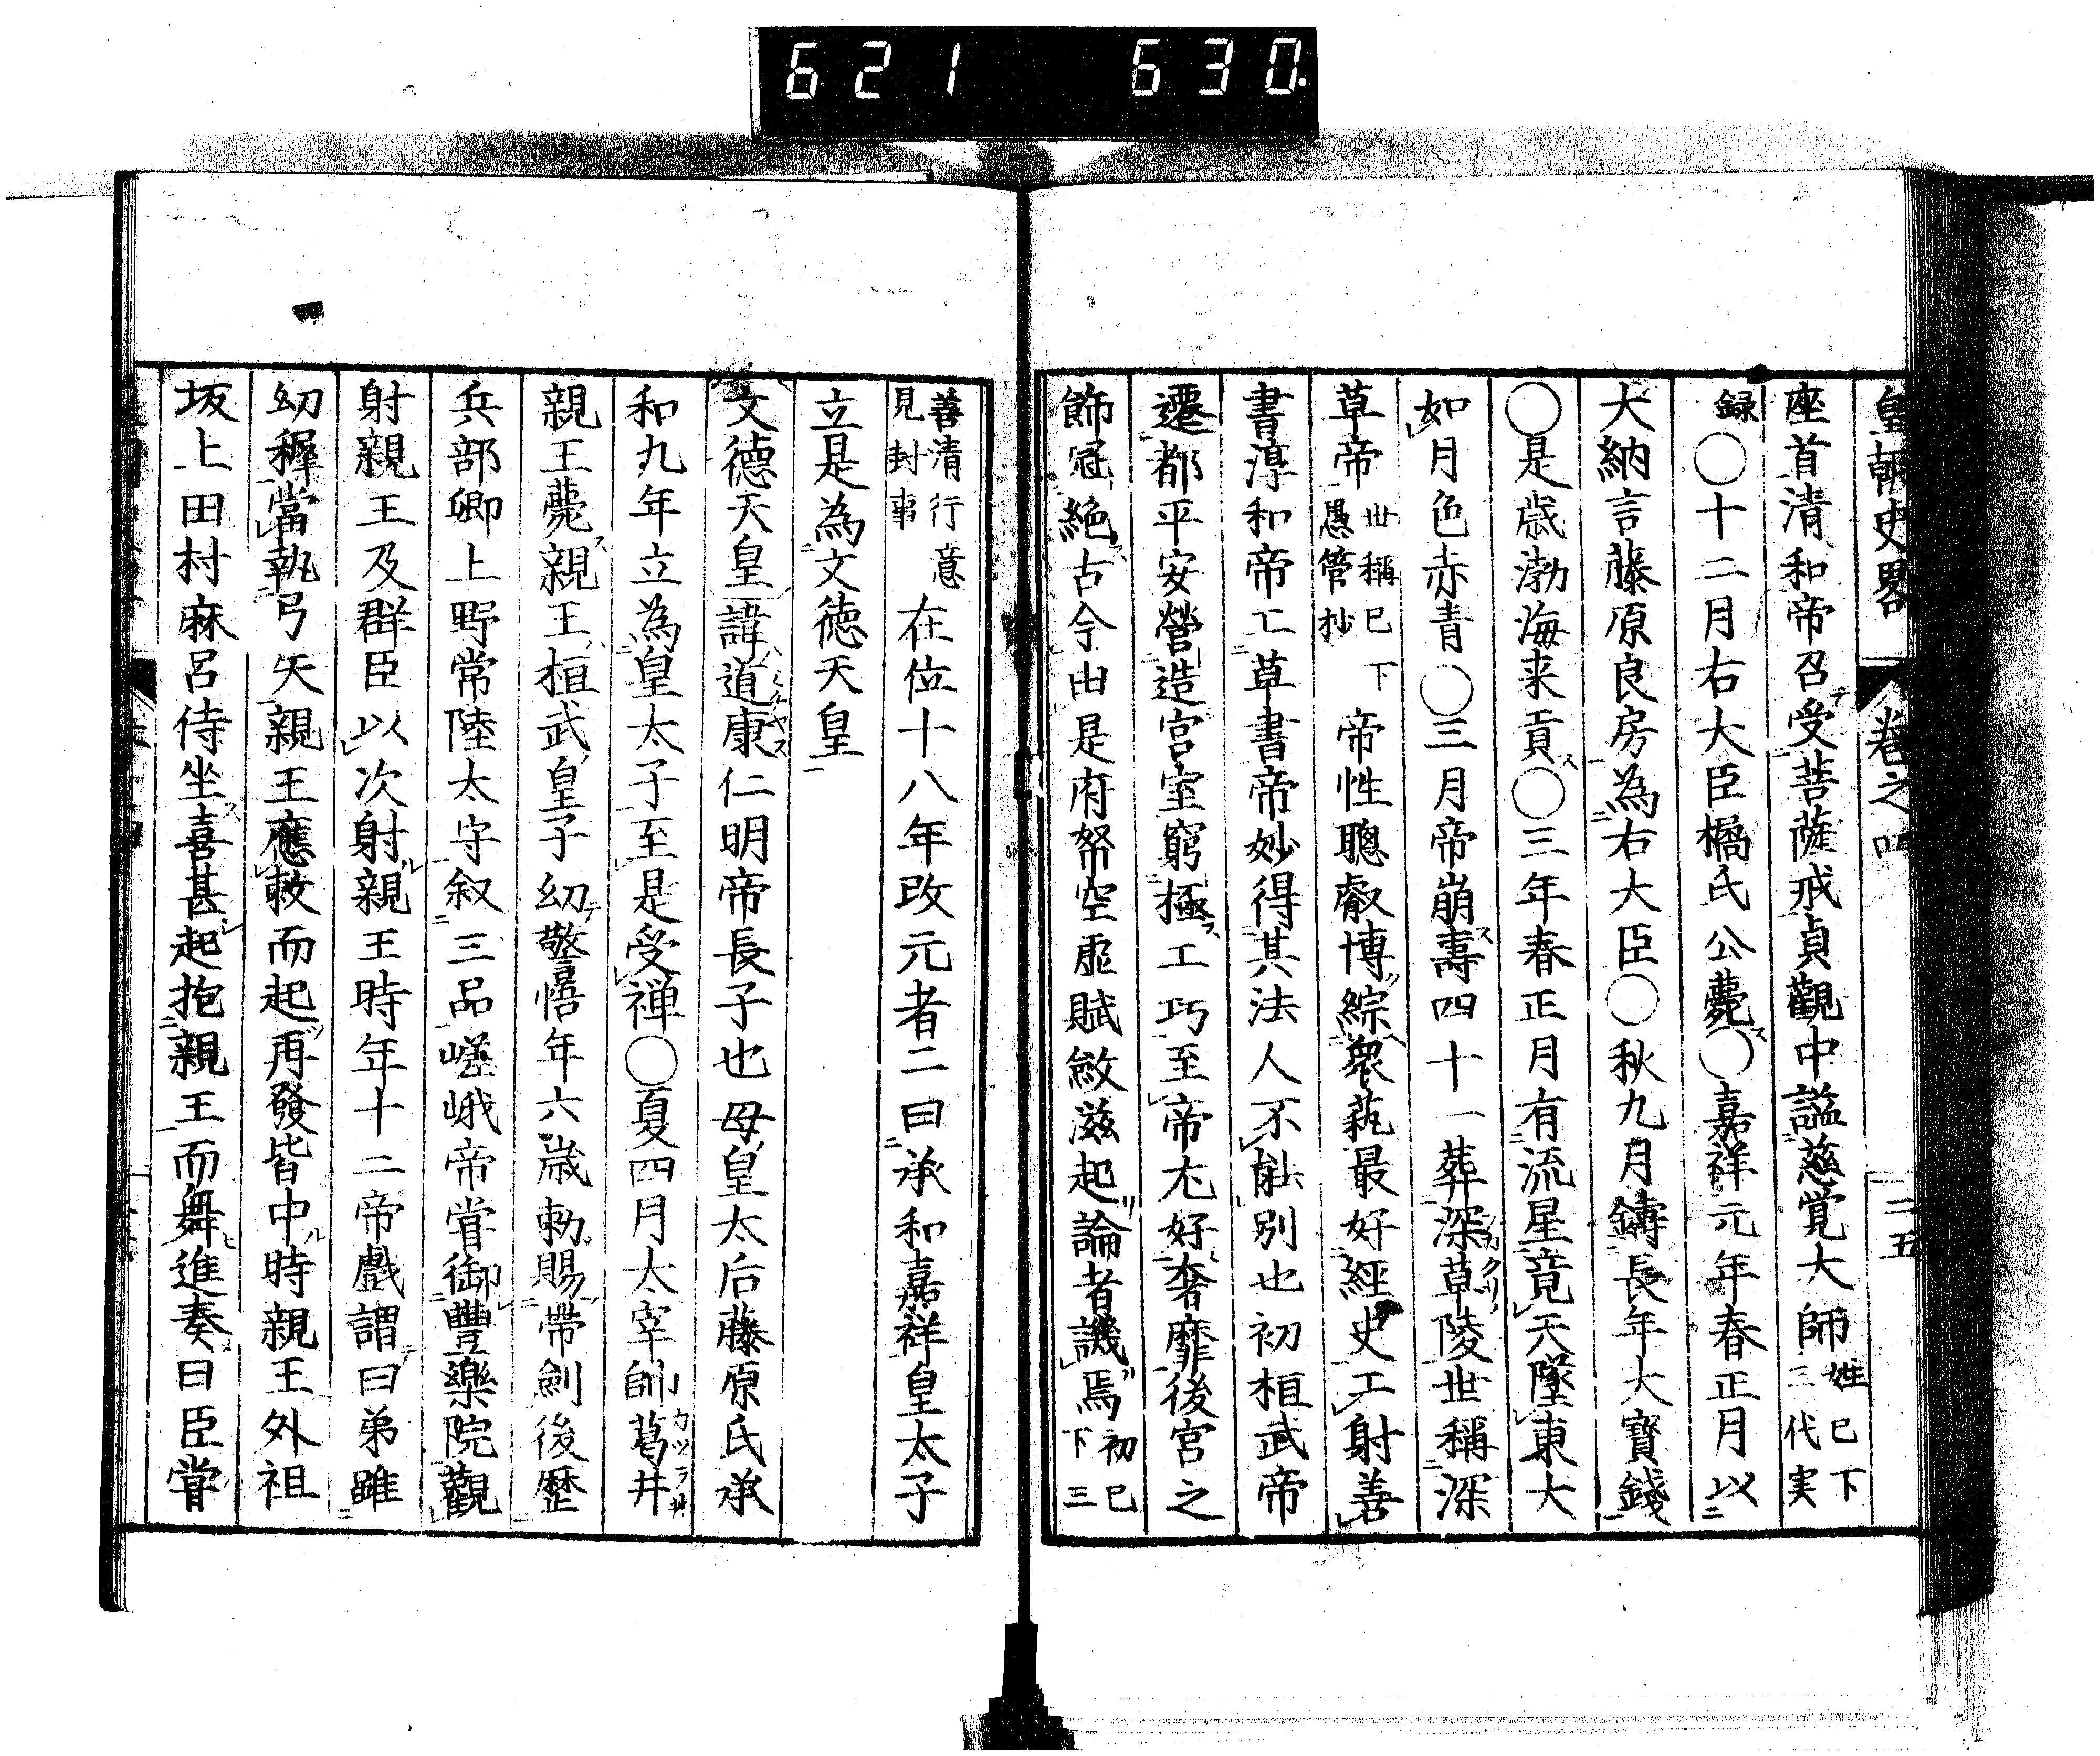 621 630.
皇朝史畧 卷之四 二五
座首清和帝召受菩薩戒貞觀中諡慈覚大師姓已下三代実
録〇十二月右大臣橘氏公薨〇嘉祥元年春正月以
大納言藤原良房為右大臣〇秋九月鑄長年大寶錢
〇是歳渤海来貢〇三年春正月有流星竟天墜東大
如月色赤青〇三月帝崩壽四十一葬深草陵世稱深
草帝世稱已下愚管抄帝性聰叡博綜衆藝最好經史工射善
書淳和帝工草書帝妙得其法人不能別也初桓武帝
遷都平安營造宮室窮極工巧至帝尤好奢靡後宮之
飾冠絶古今由是府帑空虛賦斂滋起論者譏焉初已下三
善清行意見封事在位十八年改元者二曰承和嘉祥皇太子
立是為文徳天皇
文徳天皇諱道康仁明帝長子也母皇太后藤原氏承
和九年立為皇太子至是受禅〇夏四月太宰帥葛井
親王薨親王桓武皇子幼警悟年六歳勅賜帶劍後歴
兵部卿上野常陸太守叙三品嵯峨帝甞御豐樂院觀
射親王及群臣以次射親王時年十二帝戲謂曰弟雖
幼穉當執弓矢親王應敕而起再發皆中時親王外祖
坂上田村麻呂侍坐喜甚起抱親王而舞進奏曰臣甞